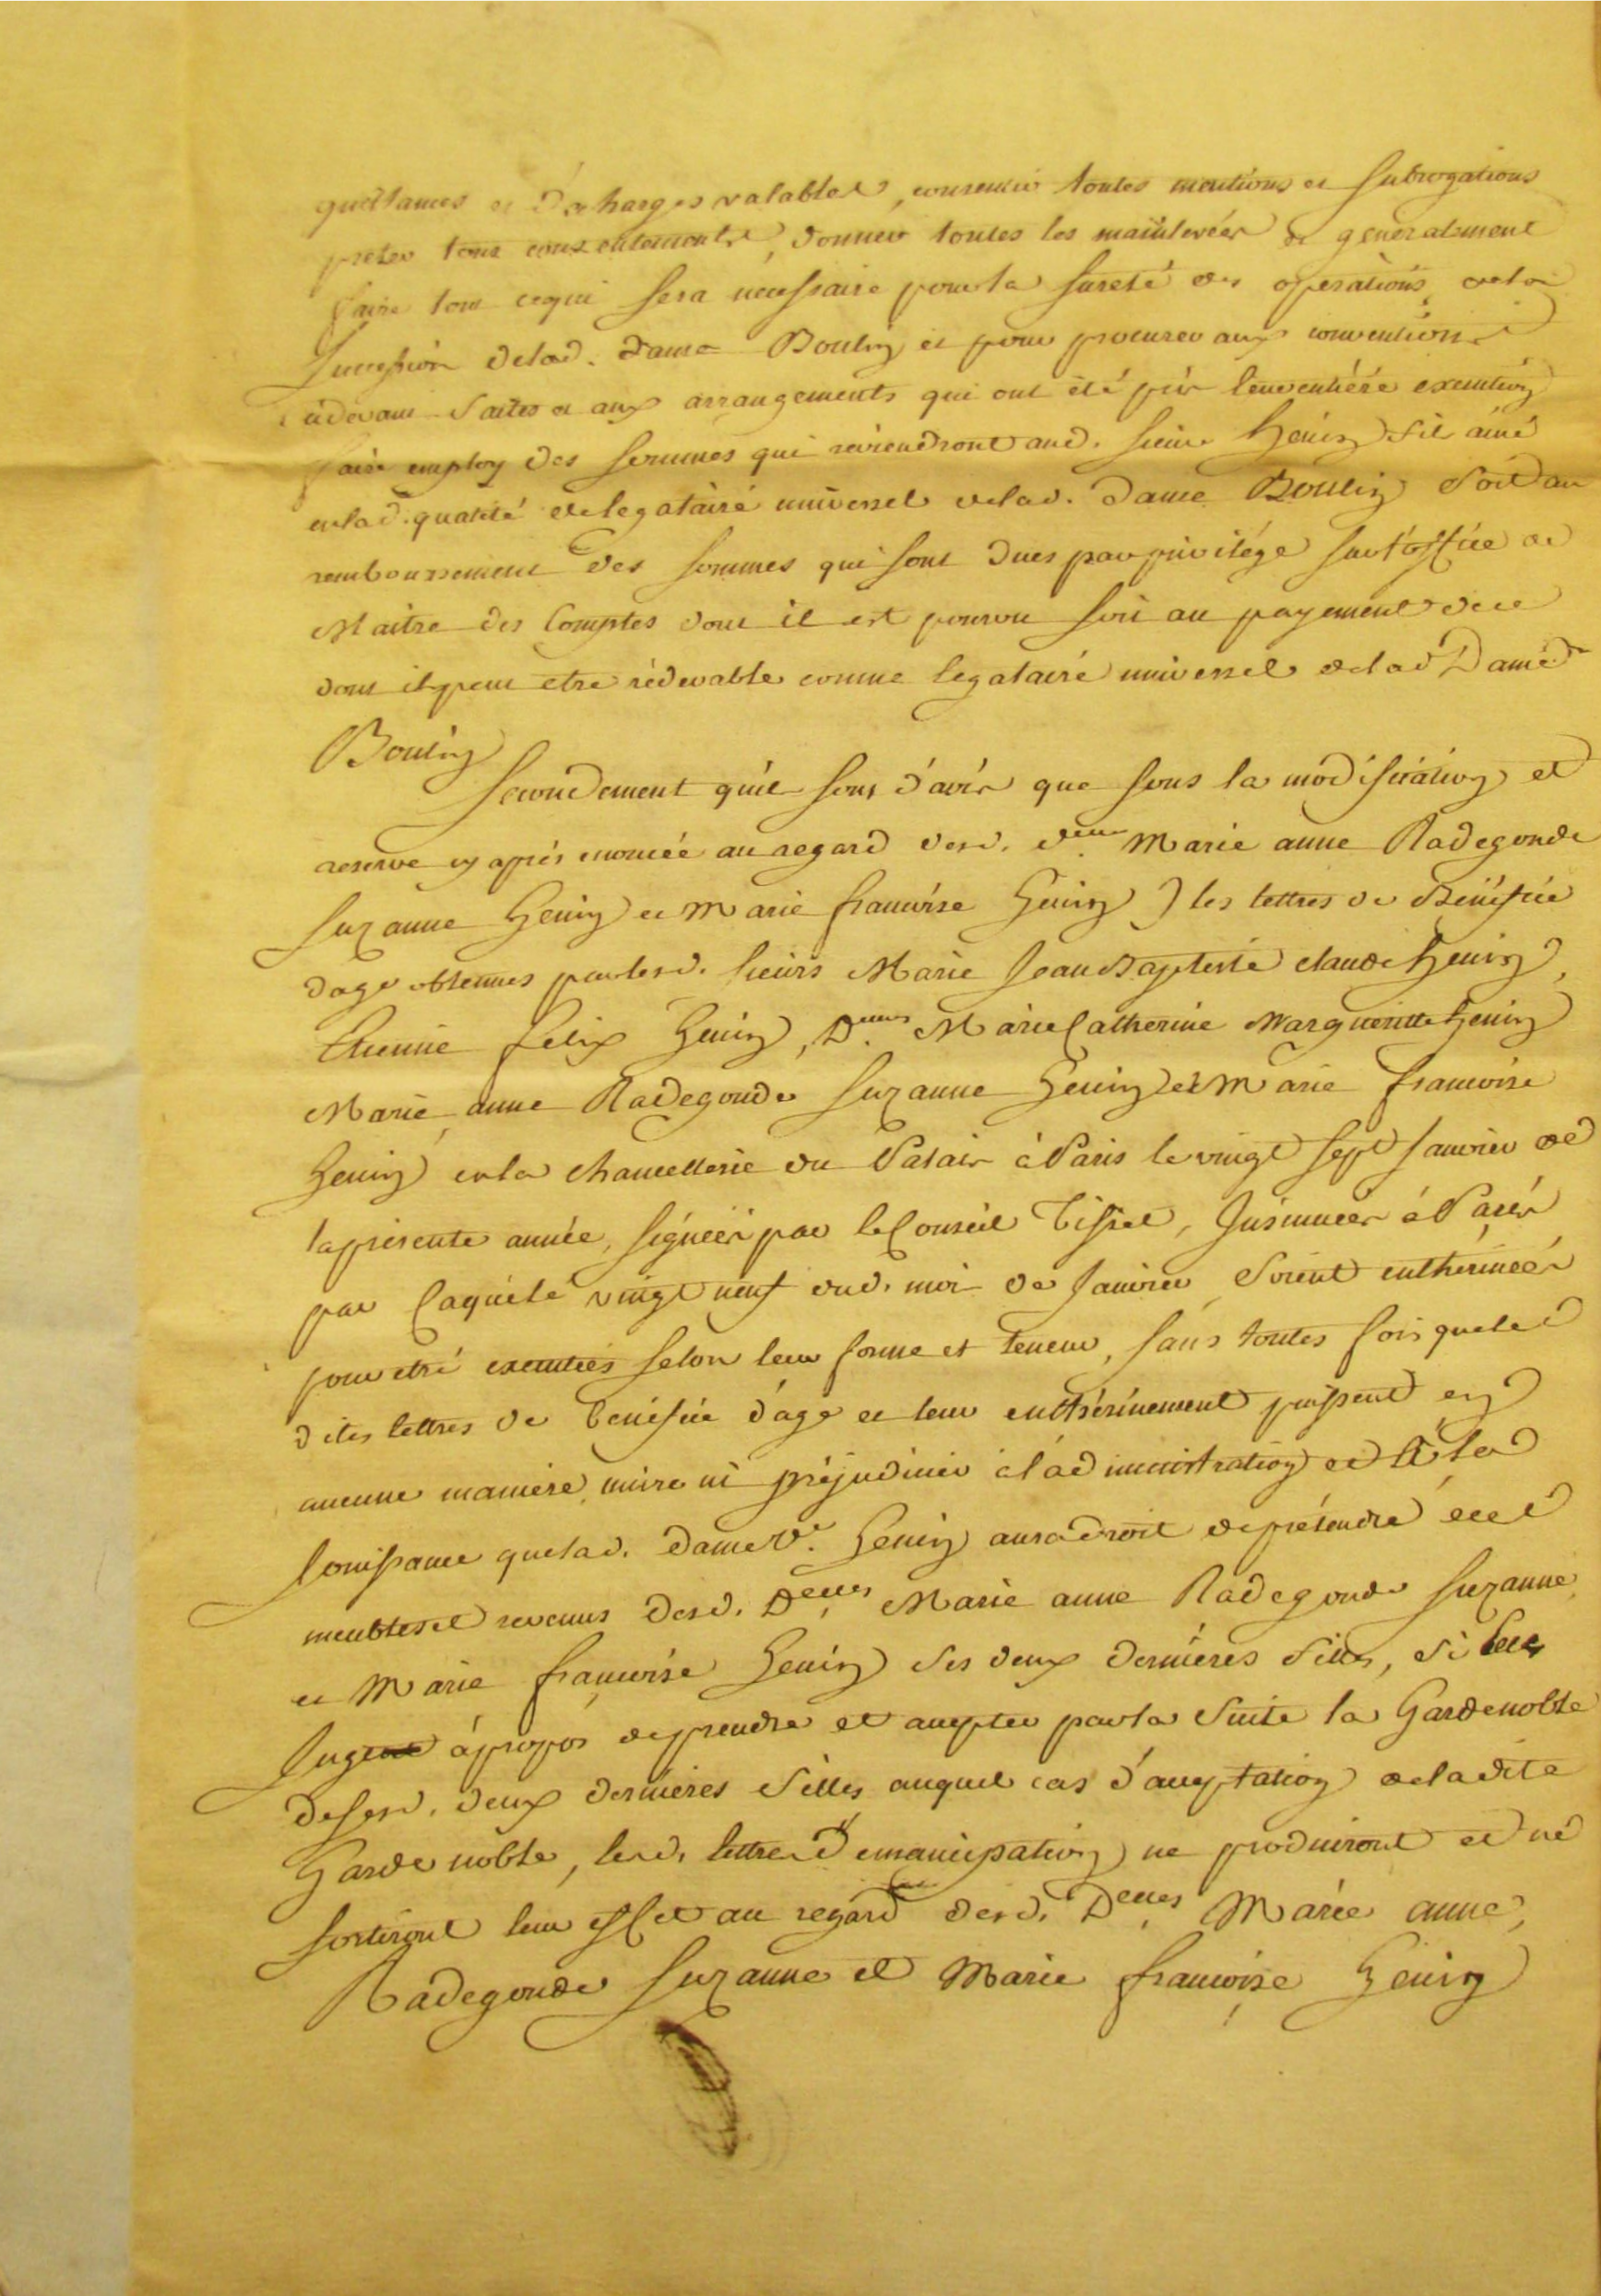 quittances et décharges valables, consentir toutes mentions et subrogations
preter tous consentements, donner toutes les mainlevées & generalement
faire tout cequi sera necessaire pour la sureté des operations dela
succession delad. dame Boutin et pour procurer aux conventions
cydevant faites et aux arrangements qui ont été pris leur entiére execution
faire employ des sommes qui reviendront aud. sieur Henin fils ainé
enlad. qualité de legataire universel delad. dame Boutin soit au
remboursement des sommes qui sont dues par privilége sur l'office de
Maitre des Comptes dont il est pourvu soit au payement dece
dont il peut etre rédevable comme legataire universel delad Dame
Boutin
Secondement qu'il sont d'avis que sous la modification et
reserve cy aprés enoncée au regard desd. dlles Marie anne Radegonde
Suzanne Henin et Marie francoise Henin) les lettres de Bénéfice
dage obtenues par lesd. sieurs Marie Jean Baptiste claude Henin,
Etienne felix Henin, Dlles Marie Catherine Marguerite Henin
Marie anne Radegonde Suzanne Henin et Marie francoise
Henin en la chancellerie du Palais à Paris le vingt sept Janvier de
la presente année, signées par le Conseil Tisset, Insinuées à Paris
par Laquele vingt neuf dud. mois de Janvier soient entherinées
pour etre executées selon leur forme et teneur, sans toutes fois queles
dites lettres de benefice d'age et leur enthérinement puissent en
aucune maniere nuire ni préjudicier à l'administration et à la
Jouissance quelad. dame Ve. Henin aura droit de prétendre ecel
meubles et revenus desd. Delles Marie anne Radegonde Suzanne
et Marie françoise Henin ses deux dernieres filles, si elle
Juge à propos de prendre et accepter par la suite la Garde noble
desesd. deux dernieres filles auquel cas d'acceptation de ladite
Garde noble, lesd. lettres d'emancipation ne produiront et ne
sortiront leur effet au regard desd. Delles Marie anne,
Radegonde Suzanne et Marie françoise Henin